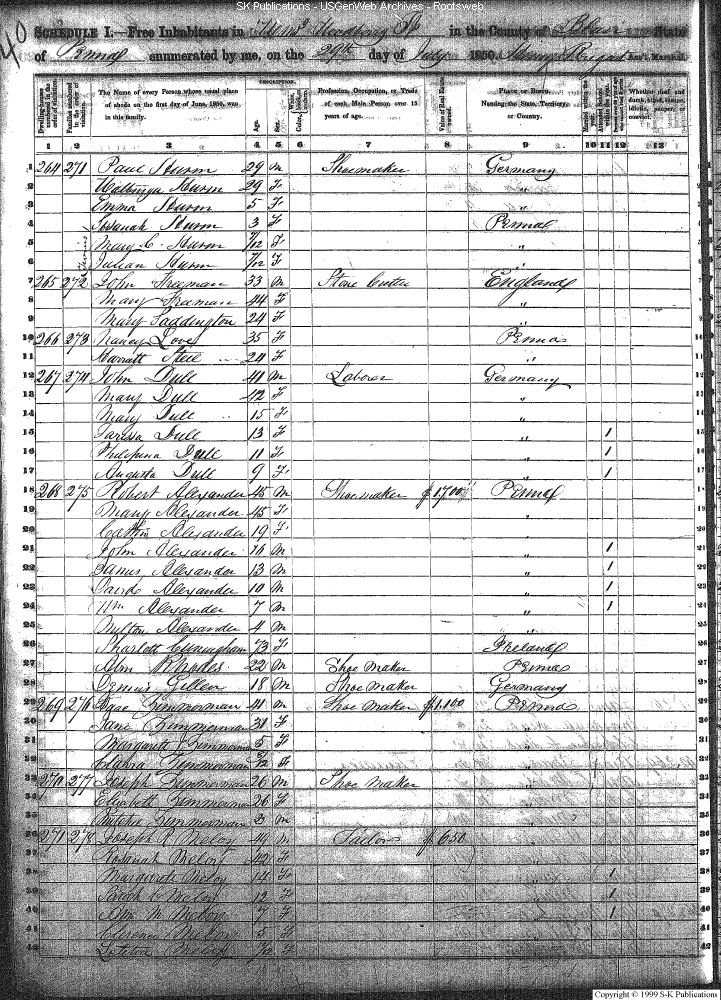 SK Publications - USGenWeb Archives - Rootsweb
40
SCHEDULE I.—Free Inhabitants in in the County of Blair State
of Penna enumerated by me, on the 29th day of July 1850. Ass't Marshal.
DESCRIPTION.
Dwelling-houses numbered in the order of visitation.
Families numbered in the order of visitation.
The Name of every Person whose usual place of abode on the first day of June, 1850, was in this family.
Age.
Sex.
Color, White, black, or mulatto.
Profession, Occupation, or Trade of each Male Person over 15 years of age.
Value of Real Estate owned.
Place of Birth. Naming the State, Territory, or Country.
Married within the year.
Attended School within the year.
Whether deaf and dumb, blind, insane, idiotic, pauper, or convict.
1 2 3 4 5 6 7 8 9 10 11 12 13
1 264 271 Paul Sturm 29 M Shoemaker Germany
2 Walburga Sturm 29 F "
3 Emma Sturm 5 F "
4 Susanah Sturm 3 F Penna
5 Mary C. Sturm 7/12 F "
6 Julian Sturm 7/12 F "
7 265 272 John Freeman 33 M Stone Cutter England
8 Mary Freeman 44 F "
9 Mary Saddington 24 F "
10 266 273 Nancy Love 35 F Penna
11 Harratt Stell 24 F "
12 267 274 John Dull 41 M Laborer Germany
13 Mary Dull 42 F "
14 Mary Dull 15 F "
15 Taressa Dull 13 F " 1
16 Philopena Dull 11 F " 1
17 Augusta Dull 9 F " 1
18 268 275 Robert Alexander 45 M Shoemaker $1,700 Penna
19 Mary Alexander 45 F "
20 Alexander 19 F "
21 John Alexander 16 M " 1
22 James Alexander 13 M " 1
23 David Alexander 10 M " 1
24 Wm Alexander 7 M " 1
25 Milton Alexander 4 M "
26 Sharlott Cuningham 73 F Ireland
27 Rhodes 22 M Shoe Maker Penna
28 Dennis Gillen 18 M Shoe Maker Germany
29 269 276 Isaac Zimmerman 41 M Shoe Maker $1,100 Penna
30 Jane Zimmerman 31 F "
31 Margarett Zimmerman 5 F "
32 Clarra Zimmerman F "
33 270 277 Joseph Zimmerman 26 M Shoe Maker "
34 Elizabeth Zimmerman 26 F "
35 Zimmerman 3 M "
36 271 278 Joseph R Meloy 49 M Tailor $650 "
37 Rosanah Meloy 42 F "
38 Margarett Meloy 14 F " 1
39 Sarah C Meloy 12 F " 1
40 Meloy 7 F " 1
41 Clarence Meloy 5 F "
42 Meloy F "
Copyright © 1999 S-K Publications